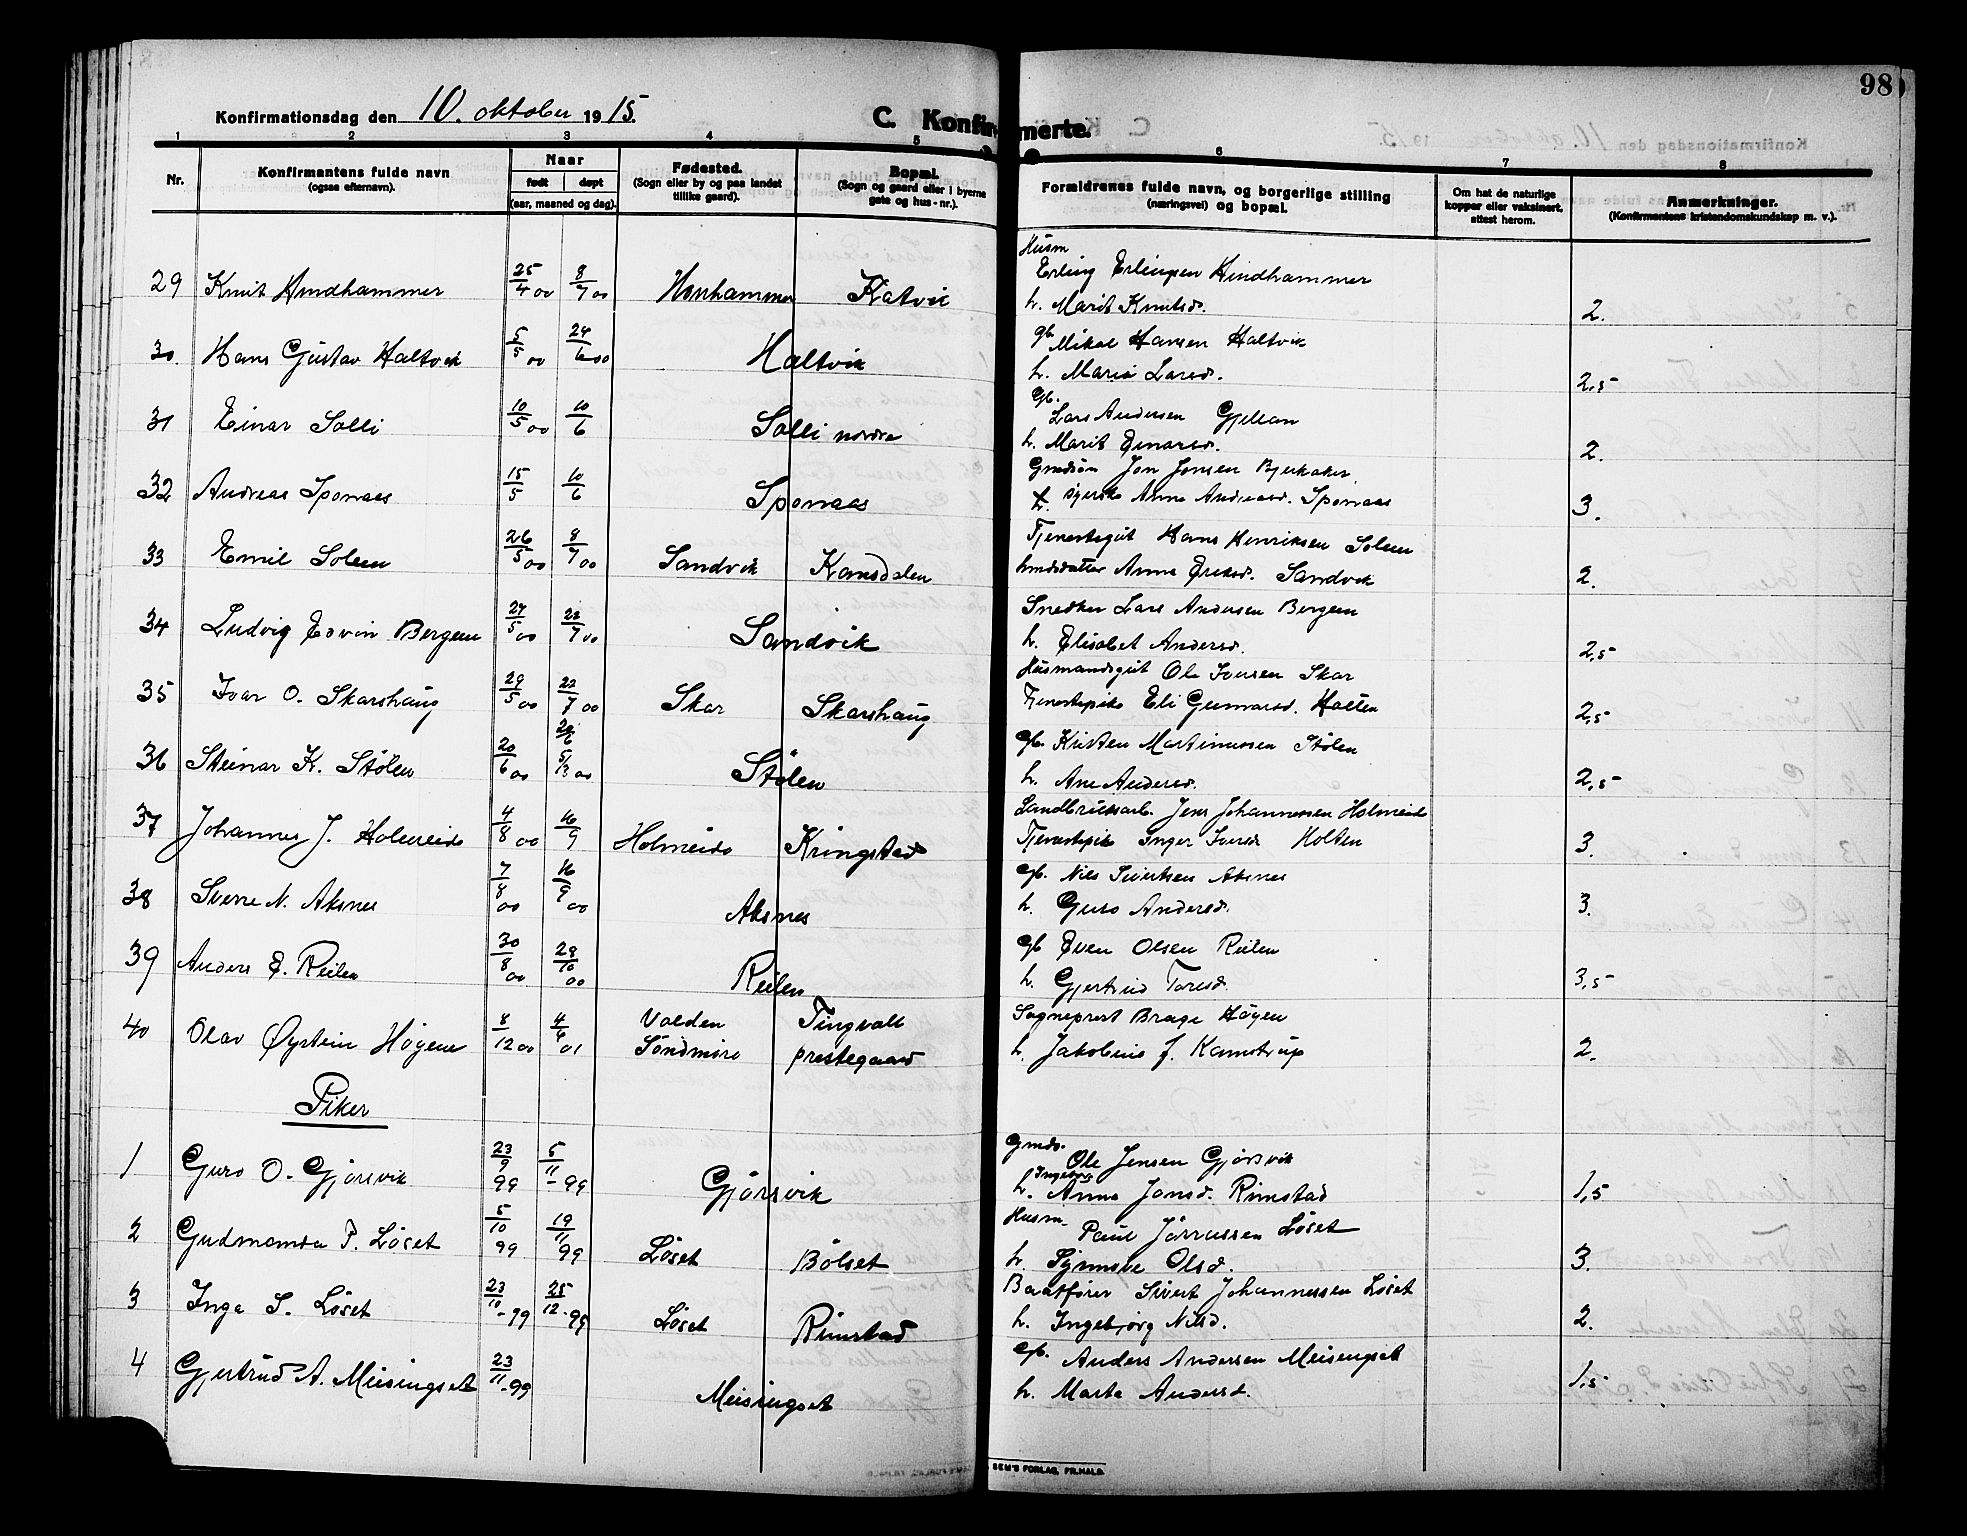 98
Konfirmationsdag den 10. oktober 1915.
C. Konfirmerte.
1 2 3 4 5 6 7 8
Nr.
Konfirmantens fulde navn
(ogsaa efternavn).
Naar
født døpt
(aar, maaned og dag).
Fødested.
(Sogn eller by og paa landet
tillike gaard).
Bopæl.
(Sogn og gaard eller i byerne
gate og hus-nr.).
Forældrenes fulde navn, og borgerlige stilling
(næringsvei) og bopæl.
Om hat de naturlige
kopper eller vaksinert,
attest herom.
Anmerkninger.
(Konfirmantens kristendomskundskap m. v.).
Husm
29 Knut Hindhammer 25/4 00 8/7 00 Honhammer Katvik Erling Erlingsen Hindhammer
h. Marit Knutsd. 2.
30. Hans Gustav Haltvik 5/5 00 24/6 00 Haltvik gb. Mikal Hansen Haltvik
h. Maria Larsd. 2,5
gb.
31 Einar Solli 10/5 00 10/6 Solli nordre Lars Andersen Gjellan
h. Marit Einarsd. 2.
32 Andreas Sponaas 15/5 10/6 Sponaas Gmdsøn Jon Jonsen Bjerkaker
Anne Andreasd. Sponaas 3.
33 Emil Solem 26/5 00 8/7 00 Sandvik Kamsdalen Tjenestegut Hans Henriksen Solem
Anne Eriksd. Sandvik 2.
34 Ludvig Edvin Bergem 27/5 00 22/7 00 Sandvik Snedker Lars Andersen Bergem
h. Elisabet Andersd. 2,5
35 Ivar O. Skarshaug 29/5 00 22/7 00 Skar Skarshaug Husmandsgut Ole Iversen Skar
Tjenestepike Eli Gunnarsd. Holten 2,5
36 Steinar K. Stølen 20/6 00 Stølen gb. Kristen Martinussen Stølen
h. Ane Andersd. 2,5
37 Johannes J. Holmeide 4/8 00 16/9 Holmeide Kringstad Landbruksarb. Jens Johannessen Holmeide
Tjenestepike Inger Iversd Holten 3.
38 Sverre N. Aksnes 7/8 00 16/9 00 Aksnes gb. Nils Sivertsen Aksnes
h. Guro Andersd. 3.
39 Anders E. Reilen 30/8 00 28/10 00 Reilen gb Even Olsen Reilen
h. Gjertrud Toresd. 3,5
40 Olav Øystein Høgene 8/12 00 4/6 01 Volden Tingvoll Sogneprest Brage Høgen
Søndmøre prestegaard h. Jakobine J. Kamstrup 2.
Piker
Gmds.
1 Guro O. Gjørsvik 23/9 99 5/11 - 99 Gjørsvik Ole Jensen Gjørsvik
Ingeborg
h. Anna Jonsd. Rimstad 1,5
2 Gudmomda P. Løset 5/10 99 19/11 99 Løset Bølset Husm Paul Jørnssen Løset
h. Synnøve Olsd. 3.
3 Inga S. Løset 23/10 - 99 25/12 - 99 Løset Rimstad Baatfører Sivert Johannessen Løset
h. Ingebjørg Nilsd. 2.
4 Gjertrud A. Meisingset 23/11 - 99 Meisingset gb. Anders Andersen Meisingset
h. Marta Andersd. 1,5
SEM'S FORLAG, FR.HALD.